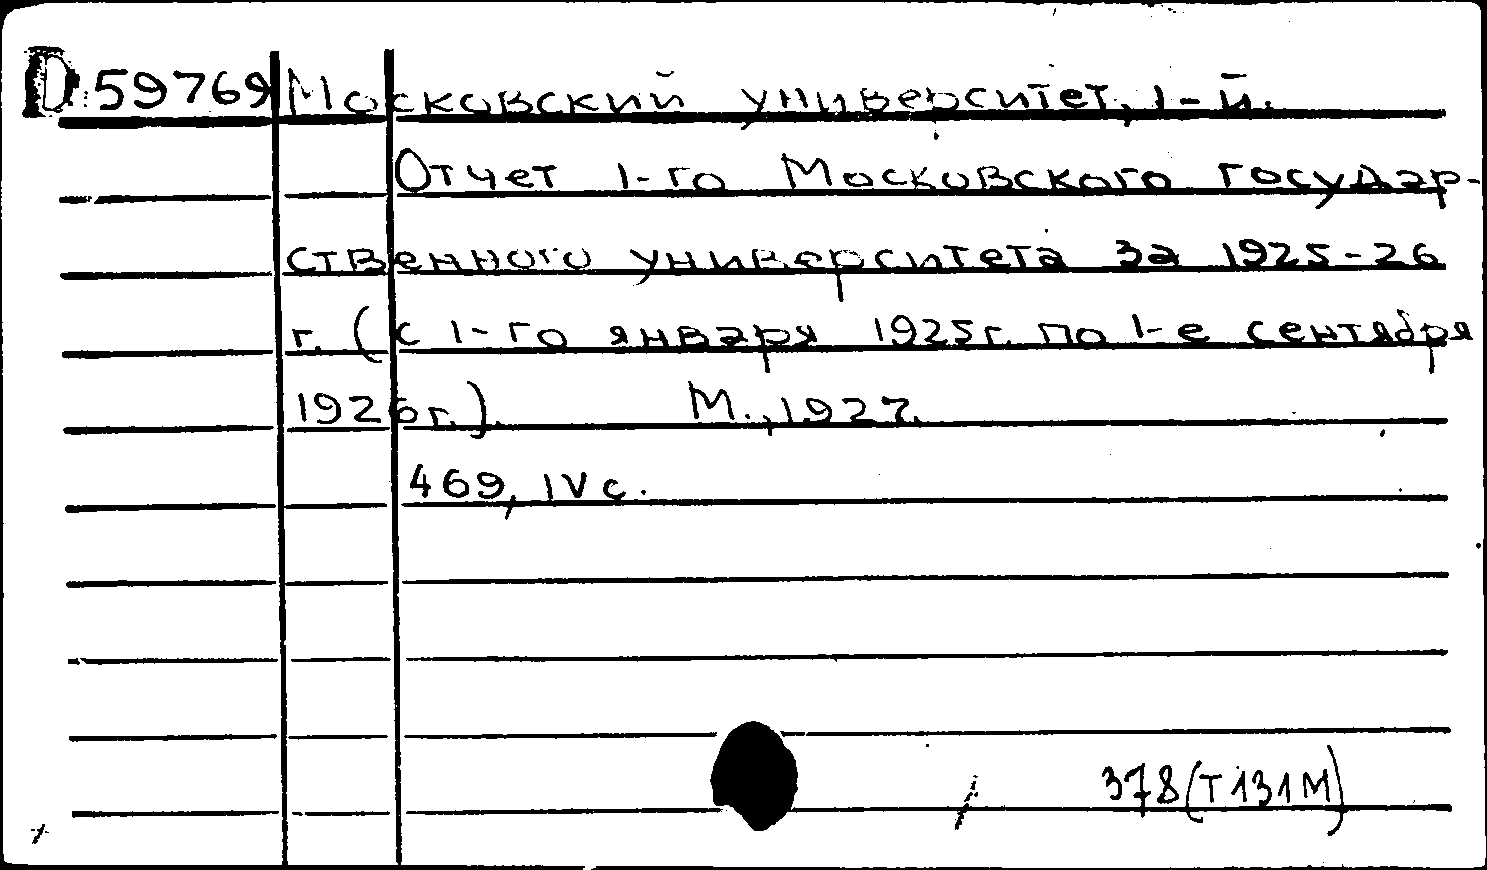 D 59769 Московский университет, 1-й.
Отчет 1-го Московского государ-
ственного университета за 1925-26
г. (с 1-го января 1925г. по 1-е сентября
1926г.). М., 1927.
469, IV с.
378(Т131М)